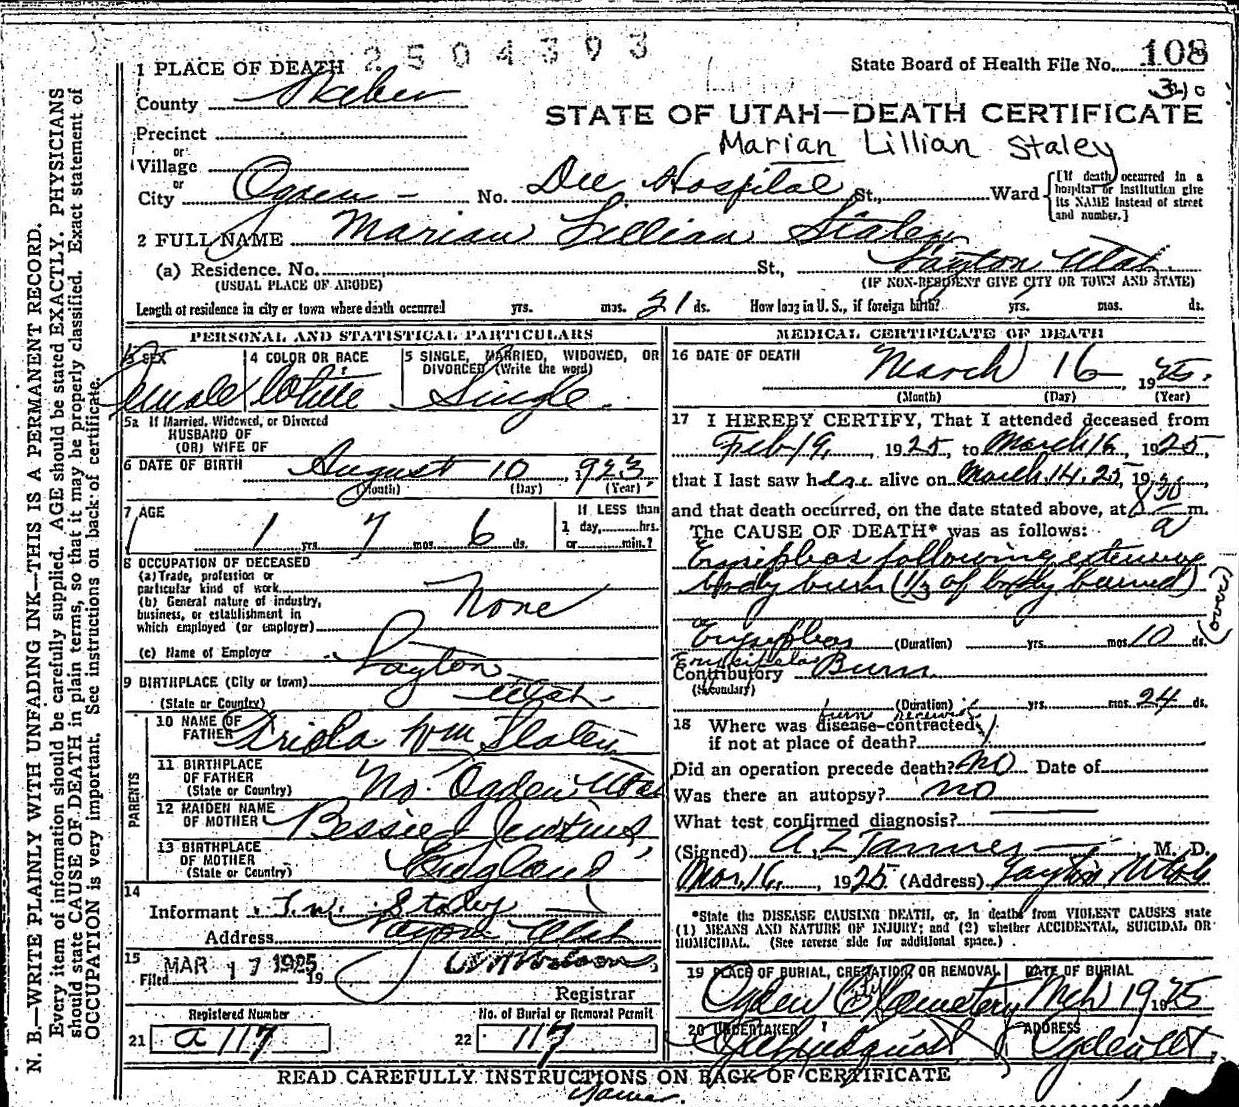 2504393
1 PLACE OF DEATH
State Board of Health File No. 108
340
County Weber
STATE OF UTAH—DEATH CERTIFICATE
Precinct
Marian Lillian Staley
or
Village
or
City Ogden - No. Dee Hospital St., Ward
[If death occurred in a hospital or institution give its NAME instead of street and number.]
2 FULL NAME Marian Lillian Staley
(a) Residence. No. St., Layton Utah.
(USUAL PLACE OF ABODE) (IF NON-RESIDENT GIVE CITY OR TOWN AND STATE)
Length of residence in city or town where death occurred yrs. mos. 21 ds. How long in U.S., if foreign birth? yrs. mos. ds.
PERSONAL AND STATISTICAL PARTICULARS
3 SEX
Female
4 COLOR OR RACE
White
5 SINGLE, MARRIED, WIDOWED, OR DIVORCED (Write the word)
Single
5a If Married, Widowed, or Divorced
HUSBAND OF
(OR) WIFE OF
6 DATE OF BIRTH August 10 1923
(Month) (Day) (Year)
7 AGE
1 yrs. 7 mos. 6 ds.
If LESS than
1 day,......hrs.
or......min.?
8 OCCUPATION OF DECEASED
(a) Trade, profession or
particular kind of work
(b) General nature of industry,
business, or establishment in
which employed (or employer)
None
(c) Name of Employer
9 BIRTHPLACE (City or town) Layton
(State or Country) Utah.
PARENTS
10 NAME OF FATHER Wm Staley
11 BIRTHPLACE OF FATHER (State or Country) No. Ogden Utah
12 MAIDEN NAME OF MOTHER Bessie Jenkins
13 BIRTHPLACE OF MOTHER (State or Country) England
14
Informant Staley
Address Layton Utah
15
Filed MAR 17 1925 19
Registrar
Registered Number
21 a 117
No. of Burial or Removal Permit
22 117
MEDICAL CERTIFICATE OF DEATH
16 DATE OF DEATH
March 16, 1925.
(Month) (Day) (Year)
17 I HEREBY CERTIFY, That I attended deceased from
Feb 19, 1925, to March 16, 1925,
that I last saw her alive on March 14, 25, 19
and that death occurred, on the date stated above, at 8 30 a m.
The CAUSE OF DEATH* was as follows:
Erysipelas following extensive
body burn (1/3 of body burned)
(over)
Erysipelas (Duration) yrs. mos. 10 ds.
Erysipelas
Contributory Burn
(Secondary)
(Duration) yrs. mos. 24 ds.
burn received
18 Where was disease contracted,
if not at place of death?
Did an operation precede death? no Date of
Was there an autopsy? no
What test confirmed diagnosis?
(Signed) A Z Tanner M. D.
Mar. 16, 1925 (Address) Layton Utah
*State the DISEASE CAUSING DEATH, or, in deaths from VIOLENT CAUSES state
(1) MEANS AND NATURE OF INJURY; and (2) whether ACCIDENTAL, SUICIDAL OR
HOMICIDAL. (See reverse side for additional space.)
19 PLACE OF BURIAL, CREMATION, OR REMOVAL
Ogden City Cemetery
DATE OF BURIAL
Mch 19 1925
20 UNDERTAKER
ADDRESS
Ogden Ut
READ CAREFULLY INSTRUCTIONS ON BACK OF CERTIFICATE
N. B.—WRITE PLAINLY WITH UNFADING INK—THIS IS A PERMANENT RECORD.
Every item of information should be carefully supplied. AGE should be stated EXACTLY. PHYSICIANS
should state CAUSE OF DEATH in plain terms, so that it may be properly classified. Exact statement of
OCCUPATION is very important. See instructions on back of certificate.